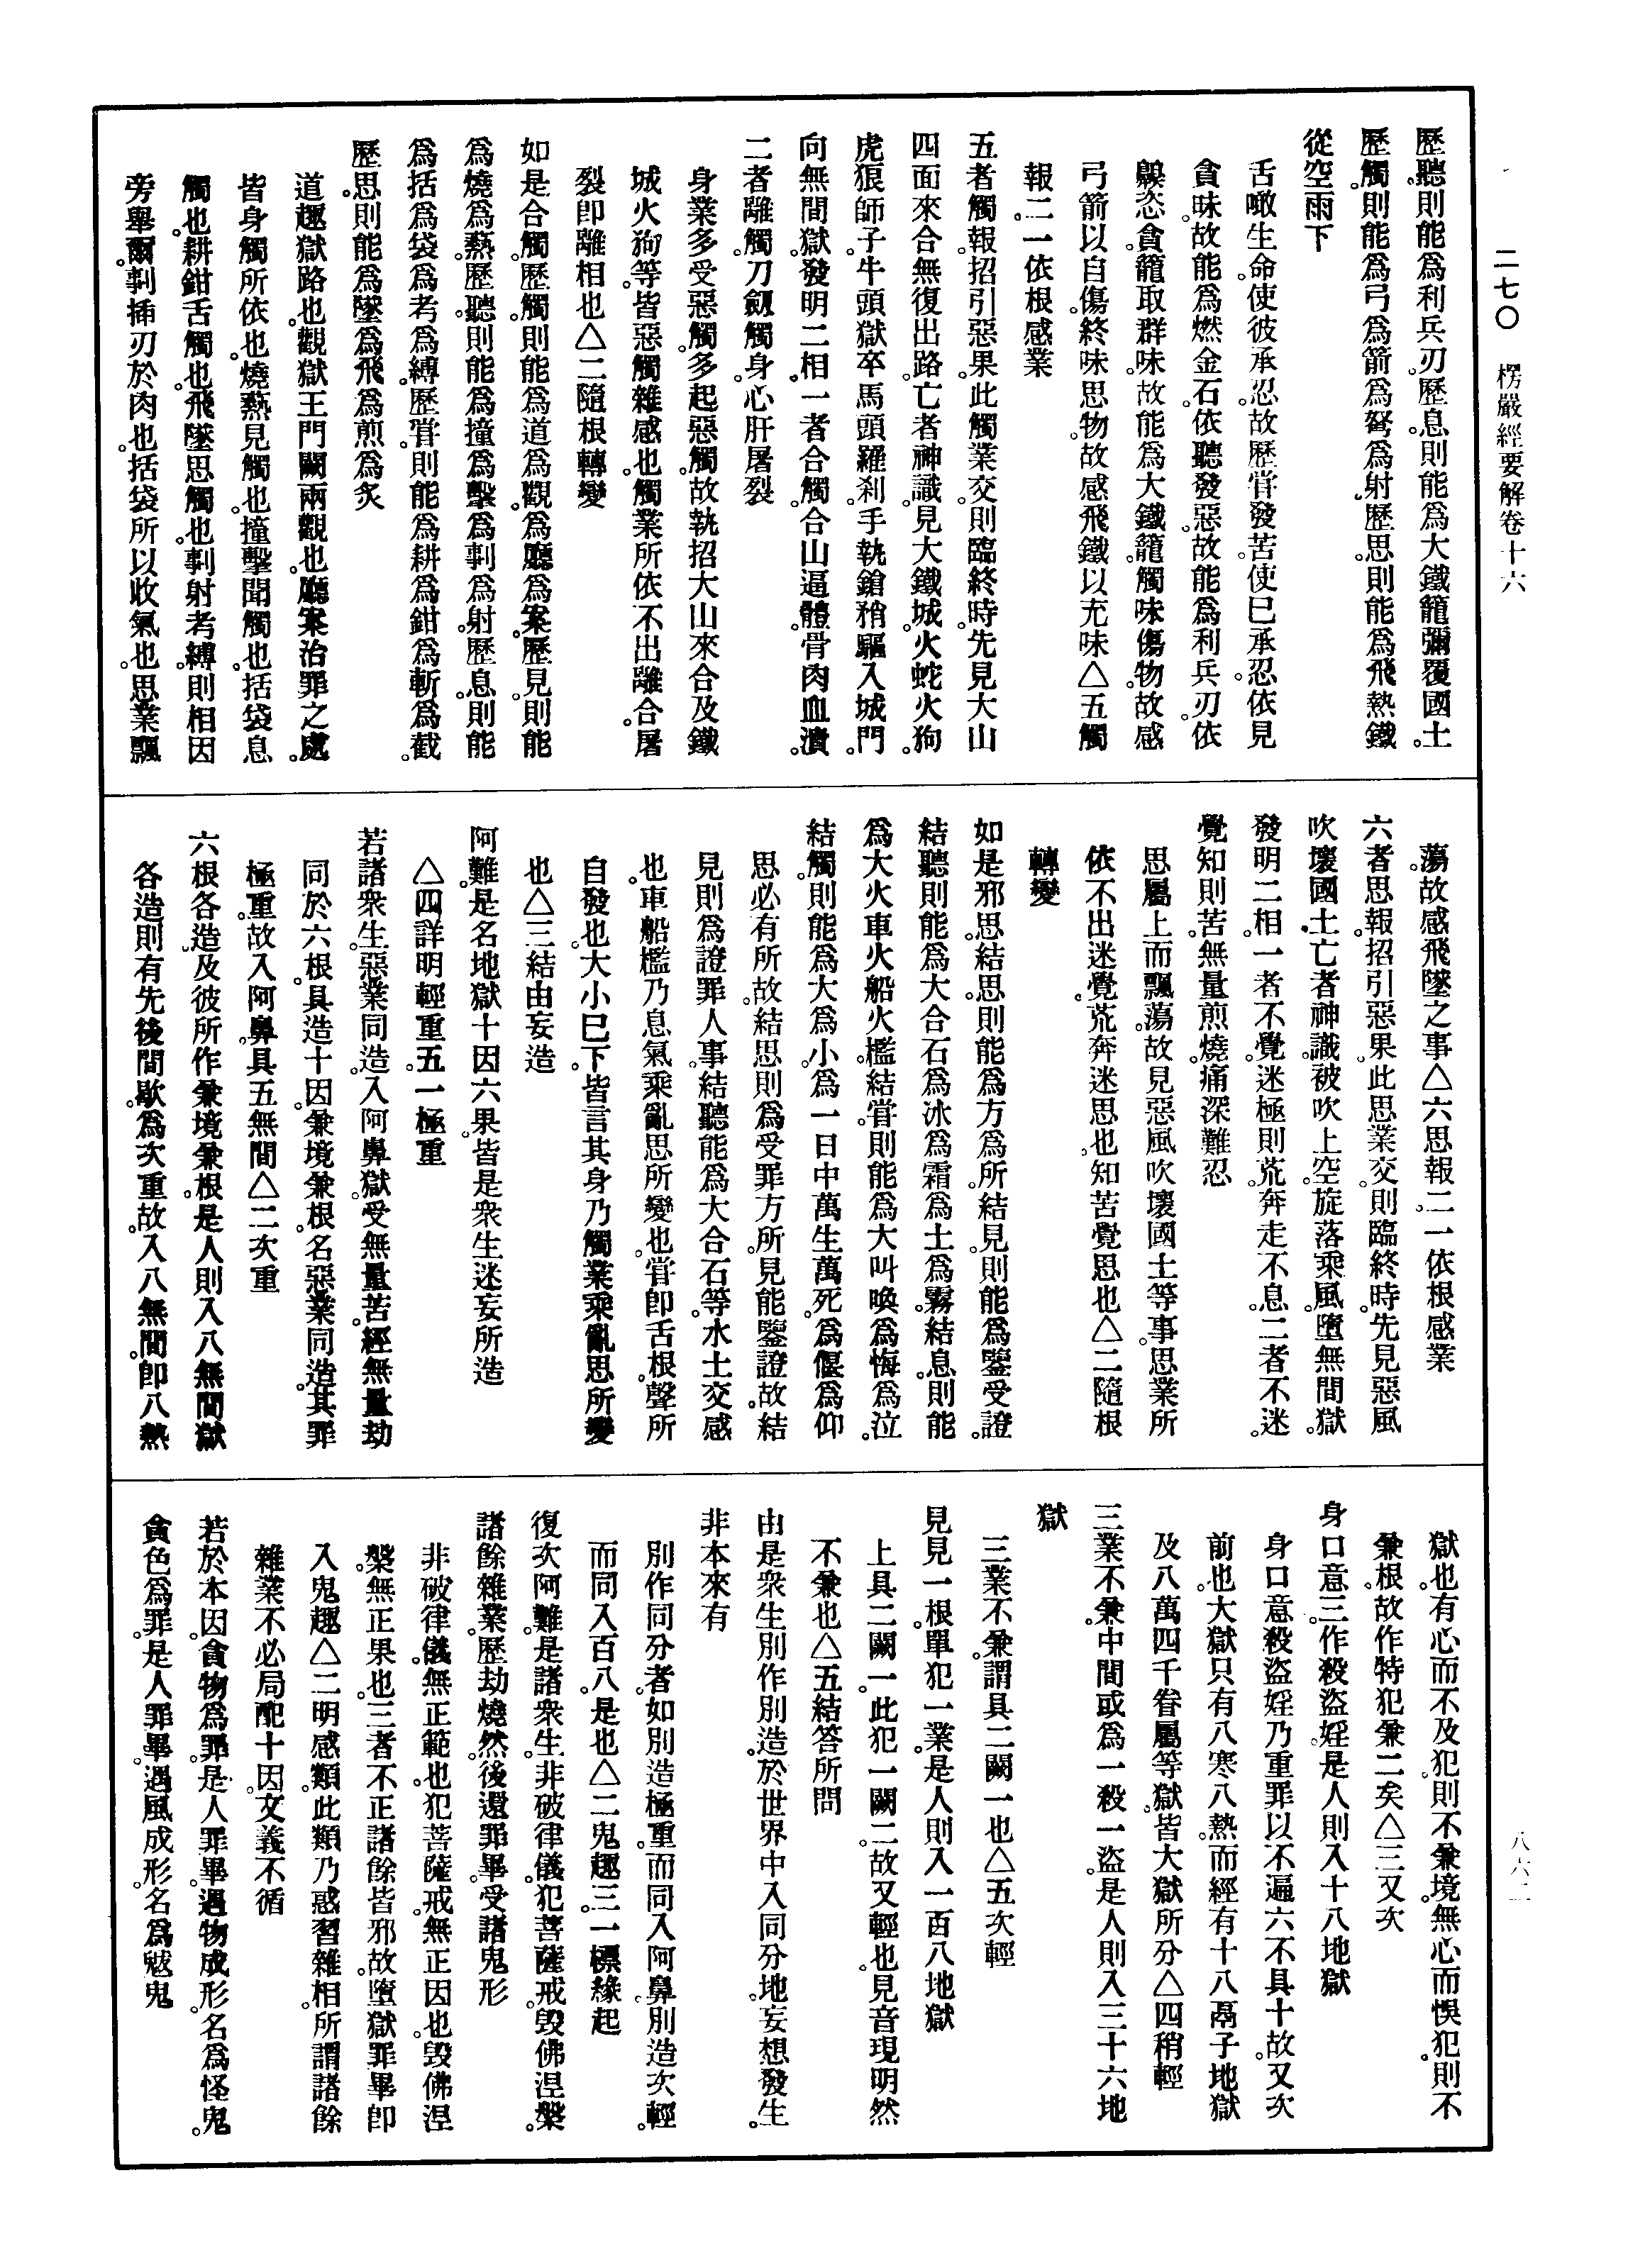 二七〇　楞嚴經要解卷十六
歷聽。則能爲利兵刃。歷息。則能爲大鐵籠彌覆國土。
歷觸。則能爲弓爲箭爲弩爲射。歷思。則能爲飛熱鐵
從空雨下
舌噉生命。使彼承忍。故歷甞發苦。使已承忍。依見
貪味。故能爲燃金石。依聽發惡。故能爲利兵刃。依
齅恣貪。籠取群味。故能爲大鐵籠。觸味傷物。故感
弓箭以自傷。終味思物。故感飛鐵以充味△五觸
報。二一依根感業
五者觸報。招引惡果。此觸業交。則臨終時。先見大山
四面來合。無復出路。亡者神識。見大鐵城。火蛇火狗
虎狼師子。牛頭獄卒。馬頭羅剎。手執鎗矟。驅入城門。
向無間獄。發明二相。一者合觸。合山逼體。骨肉血潰。
二者離觸。刀劒觸身。心肝屠裂
身業多受惡觸。多起惡觸。故執招大山來合及鐵
城火狗等。皆惡觸雜感也。觸業所依不出離合。屠
裂即離相也△二隨根轉變
如是合觸。歷觸。則能爲道爲觀。爲廳爲案。歷見。則能
爲燒爲爇。歷聽。則能爲撞爲擊爲剚爲射。歷息。則能
爲括爲袋爲考爲縛。歷甞。則能爲耕爲鉗爲斬爲截。
歷思。則能爲墜爲飛爲煎爲炙
道趣獄路也。觀獄王門闕兩觀也。廳案治罪之處。
皆身觸所依也。燒爇見觸也。撞擊聞觸也。括袋息
觸也。耕鉗舌觸也。飛墜思觸也。剚射考縛。則相因
旁舉爾。剚揷刃於肉也。括袋所以收氣也。思業飄
蕩。故感飛墜之事△六思報。二一依根感業
六者思報。招引惡果。此思業交。則臨終時。先見惡風
吹壞國土。亡者神識。被吹上空。旋落乘風。墮無間獄。
發明二相。一者不覺。迷極則荒。奔走不息。二者不迷。
覺知則苦。無量煎燒。痛深難忍
思屬上而飄蕩。故見惡風吹壞國土等事。思業所
依不出迷覺。荒奔迷思也。知苦覺思也△二隨根
轉變
如是邪思。結思。則能爲方爲所。結見。則能爲鑒受證。
結聽。則能爲大合石爲冰爲霜爲土爲霧。結息。則能
爲大火車火船火檻。結甞。則能爲大叫喚爲悔爲泣。
結觸。則能爲大爲小。爲一日中萬生萬死。爲偃爲仰
思必有所。故結思則爲受罪方所。見能鑒證。故結
見則爲證罪人事。結聽能爲大合石等。水土交感
也。車船檻乃息氣乘亂思所變也。甞即舌根。聲所
自發也。大小已下。皆言其身乃觸業乘亂思所變
也△三結由妄造
阿難。是名地獄十因六果。皆是衆生迷妄所造
△四詳明輕重。五一極重
若諸衆生。惡業同造。入阿鼻獄。受無量苦。經無量劫
同於六根。具造十因。兼境兼根。名惡業同造。其罪
極重。故入阿鼻。具五無間△二次重
六根各造。及彼所作兼境兼根。是人則入八無間獄
各造則有先後間歇。爲次重故。入八無間。即八熱
獄也。有心而不及犯。則不兼境。無心而悞犯。則不
兼根。故作特犯兼二矣△三又次
身口意三。作殺盜婬。是人則入十八地獄
身口意殺盜婬。乃重罪以不遍六不具十故。又次
前也。大獄只有八寒八熱。而經有十八鬲子地獄
及八萬四千眷屬等獄。皆大獄所分△四稍輕
三業不兼。中間或爲一殺一盜。是人則入三十六地
獄
三業不兼。謂具二闕一也△五次輕
見見一根。單犯一業。是人則入一百八地獄
上具二闕一。此犯一闕二。故又輕也。見音現明然
不兼也△五結答所問
由是衆生別作別造。於世界中。入同分地。妄想發生。
非本來有
別作同分者。如別造極重。而同入阿鼻。別造次輕。
而同入百八是也△二鬼趣。三一標緣起
復次阿難。是諸衆生。非破律儀。犯菩薩戒。毀佛涅槃。
諸餘雜業。歷劫燒然。後還罪畢。受諸鬼形
非破律儀。無正範也。犯菩薩戒。無正因也。毀佛涅
槃。無正果也。三者不正諸餘皆邪。故墮獄罪畢即
入鬼趣△二明感類。此類乃惑習雜相。所謂諸餘
雜業不必局配十因。文義不循
若於本因。貪物爲罪。是人罪畢。遇物成形。名爲怪鬼。
貪色爲罪。是人罪畢。遇風成形。名爲魃鬼